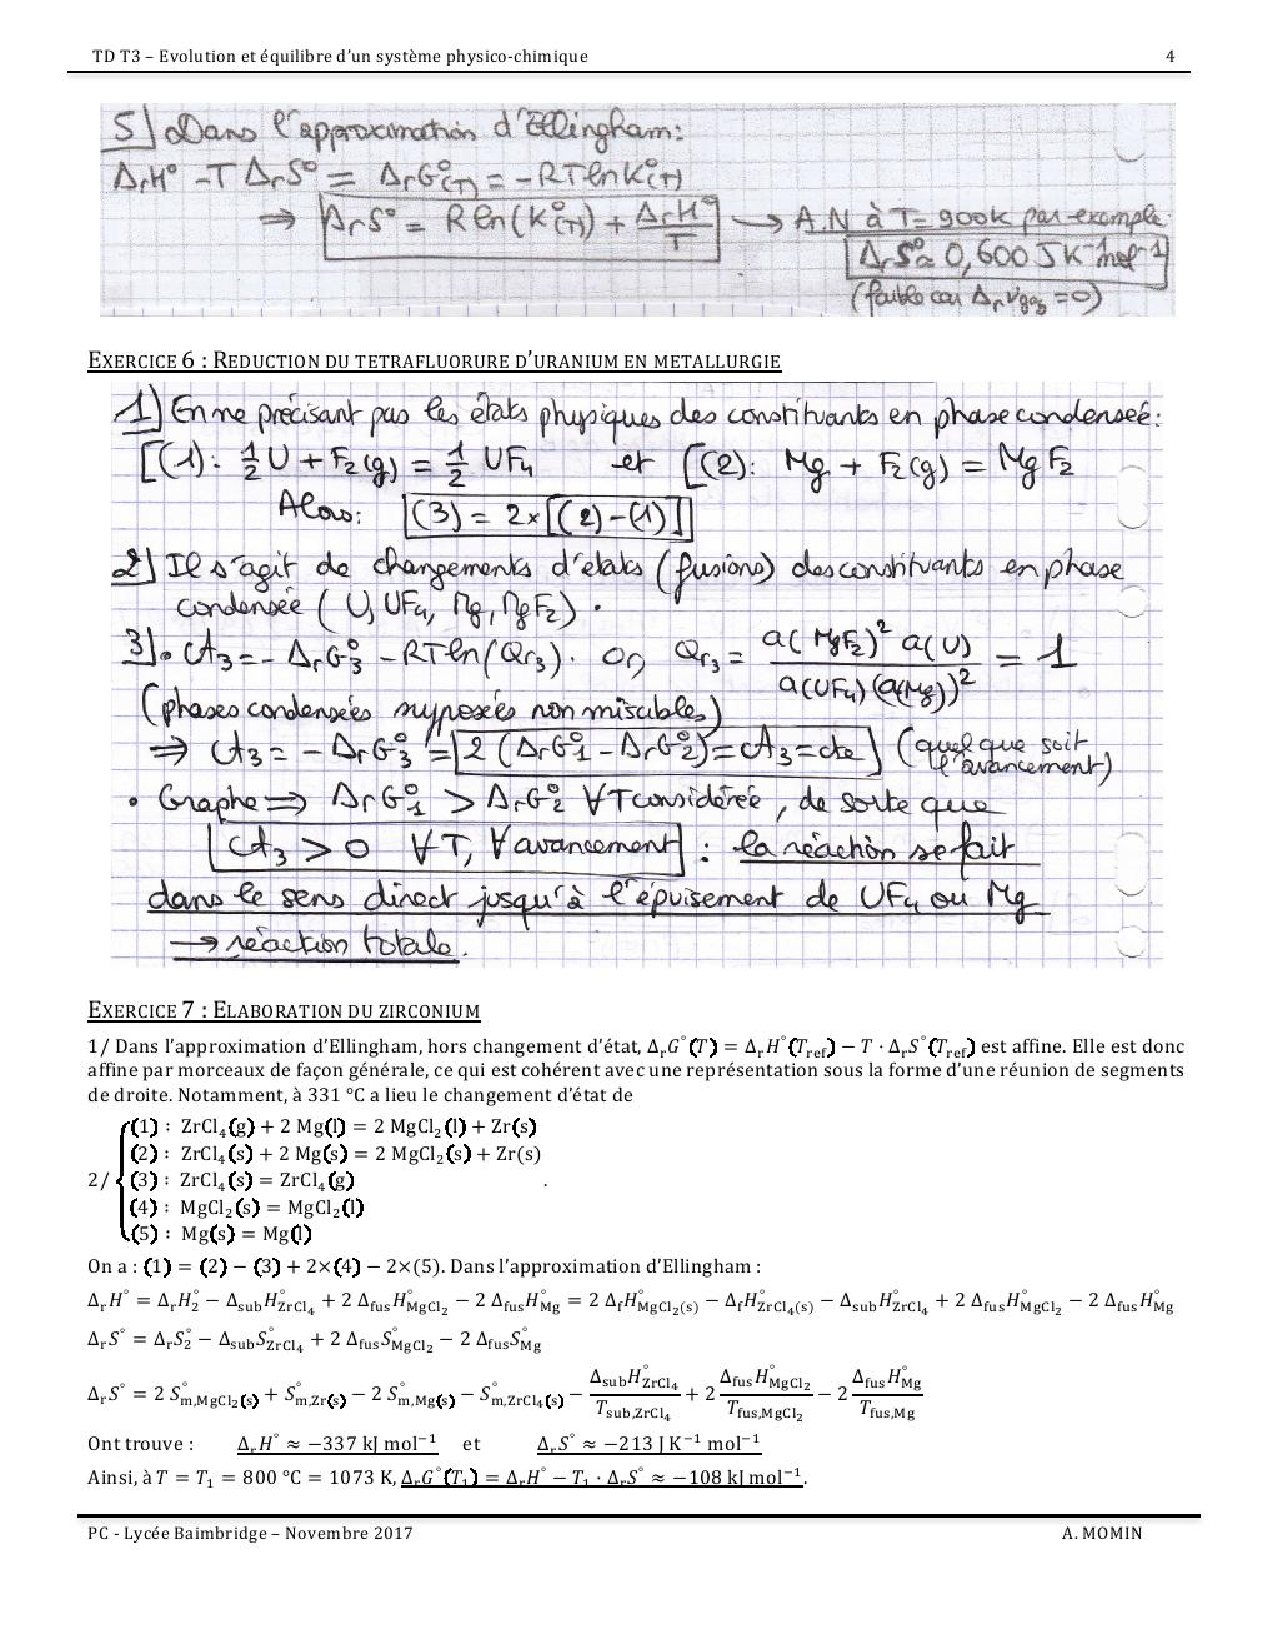 TD T3 – Evolution et équilibre d'un système physico-chimique 4
5) Dans l'approximation d'Ellingham:
ΔrH° - T ΔrS° = ΔrG°(T) = - RTlnK°(T)
⇒ ΔrS° = R ln(K°(T)) + ΔrH°/T → A.N à T= 900K par exemple:
ΔrS° ≈ 0,600 J K⁻¹ mol⁻¹
(faible car Δrνgaz = 0)
EXERCICE 6 : REDUCTION DU TETRAFLUORURE D'URANIUM EN METALLURGIE
1) En ne précisant pas les états physiques des constituants en phase condensée:
[(1): 1/2 U + F₂(g) = 1/2 UF₄ et [(2): Mg + F₂(g) = MgF₂
Alors: (3) = 2×[(2)-(1)]
2) Il s'agit de changements d'états (fusions) des constituants en phase
condensée (U, UF₄, Mg, MgF₂).
3). A₃ = - ΔrG°₃ - RTln(Qr₃). Or, Qr₃ = a(MgF₂)² a(U) / a(UF₄)(a(Mg))² = 1
(phases condensées supposées non miscibles)
⇒ A₃ = - ΔrG°₃ = 2(ΔrG°₁ - ΔrG°₂) = A₃ = cte (quel que soit l'avancement)
• Graphe ⇒ ΔrG°₁ > ΔrG°₂ ∀T considérée, de sorte que
A₃ > 0 ∀T, ∀avancement : la réaction se fait
dans le sens direct jusqu'à l'épuisement de UF₄ ou Mg
→ réaction totale.
EXERCICE 7 : ELABORATION DU ZIRCONIUM
1/ Dans l'approximation d'Ellingham, hors changement d'état, ΔrG°(T) = ΔrH°(Tref) − T · ΔrS°(Tref) est affine. Elle est donc
affine par morceaux de façon générale, ce qui est cohérent avec une représentation sous la forme d'une réunion de segments
de droite. Notamment, à 331 °C a lieu le changement d'état de
(1) : ZrCl₄(g) + 2 Mg(l) = 2 MgCl₂(l) + Zr(s)
(2) : ZrCl₄(s) + 2 Mg(s) = 2 MgCl₂(s) + Zr(s)
2/ (3) : ZrCl₄(s) = ZrCl₄(g) .
(4) : MgCl₂(s) = MgCl₂(l)
(5) : Mg(s) = Mg(l)
On a : (1) = (2) − (3) + 2×(4) − 2×(5). Dans l'approximation d'Ellingham :
ΔrH° = ΔrH₂° − ΔsubH°ZrCl₄ + 2 ΔfusH°MgCl₂ − 2 ΔfusH°Mg = 2 ΔfH°MgCl₂(s) − ΔfH°ZrCl₄(s) − ΔsubH°ZrCl₄ + 2 ΔfusH°MgCl₂ − 2 ΔfusH°Mg
ΔrS° = ΔrS₂° − ΔsubS°ZrCl₄ + 2 ΔfusS°MgCl₂ − 2 ΔfusS°Mg
ΔrS° = 2 S°m,MgCl₂(s) + S°m,Zr(s) − 2 S°m,Mg(s) − S°m,ZrCl₄(s) − ΔsubH°ZrCl₄/Tsub,ZrCl₄ + 2 ΔfusH°MgCl₂/Tfus,MgCl₂ − 2 ΔfusH°Mg/Tfus,Mg
Ont trouve : ΔrH° ≈ −337 kJ mol⁻¹ et ΔrS° ≈ −213 J K⁻¹ mol⁻¹
Ainsi, à T = T₁ = 800 °C = 1073 K, ΔrG°(T₁) = ΔrH° − T₁ · ΔrS° ≈ −108 kJ mol⁻¹.
PC - Lycée Baimbridge – Novembre 2017 A. MOMIN